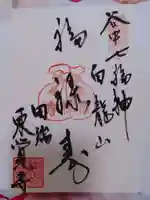 谷中七福神
白龍山
福禄寿
田端
東覚寺